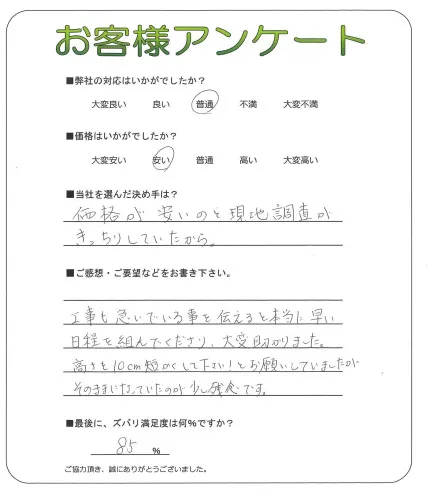 お客様アンケート
■弊社の対応はいかがでしたか？
大変良い 良い 普通 不満 大変不満
■価格はいかがでしたか？
大変安い 安い 普通 高い 大変高い
■当社を選んだ決め手は？
価格が安いのと現地調査が
きっちりしていたから。
■ご感想・ご要望などをお書き下さい。
工事も急いでいる事を伝えると本当に早い
日程を組んでくださり、大変助かりました。
高さを10cm短かくして下さい！とお願いしていましたが
そのままになっていたのが少し残念です。
■最後に、ズバリ満足度は何%ですか？
85 %
ご協力頂き、誠にありがとうございました。